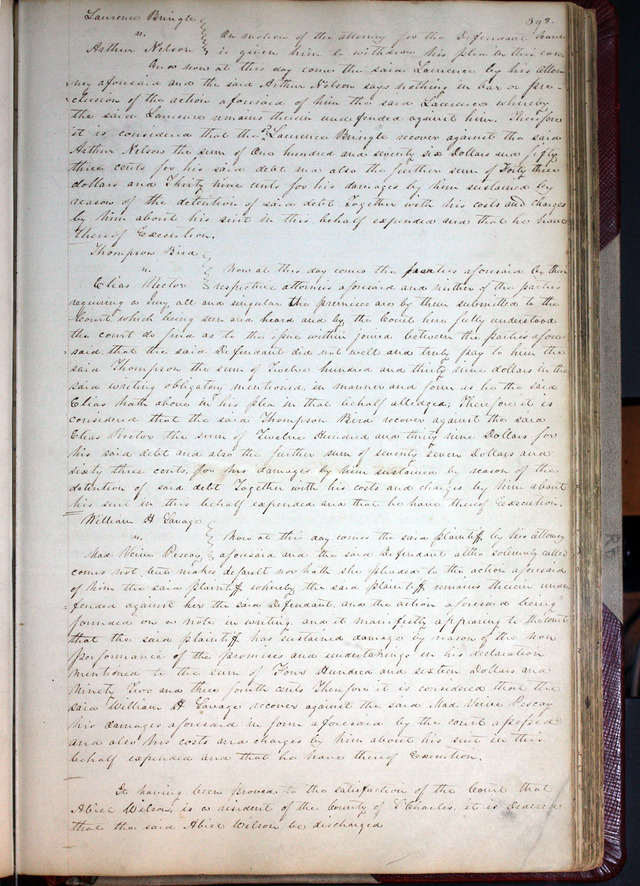 398.
Laurence Pringle
vs. On motion of the attorney for the Defendant leave
Arthur Nelson is given him to withdraw his plea in this case
And now at this day come the said Laurence by his attor
ney aforesaid and the said Arthur Nelson says nothing in bar or pre=
clusion of the action aforesaid of him the said Laurence whereby
the said Laurence remains therein undefended against him. Therefore
it is considered that the sd Laurence Pringle recover against the said
Arthur Nelson the sum of One hundred and seventy six Dollars and fifty
three cents for his said debt and also the further sum of Forty three
dollars and Thirty nine cents for his damages by him sustained by
reason of the detention of said debt Together with his costs and charges
by him about his suit in this behalf expended and that he have
thereof Execution.
Thompson Bird
vs. Now at this day comes the parties aforesaid by their
Elias Rector respective attornies aforesaid and neither of the parties
requiring a Jury, all and singular the premises are by them submitted to the
Court which being seen and heard and by the Court here fully understood
the court do find as to the issue within joined between the parties afore
said, that the said Defendant did not well and truly pay to him the
said Thompson the sum of Twelve hundred and thirty nine dollars in the
said writing obligatory mentioned, in manner and form as he the said
Elias hath above in his plea in that behalf alledged, Therefore it is
considered that the said Thompson Bird recover against the said
Elias Rector the sum of Twelve Hundred and thirty nine Dollars for
his said debt and also the further sum of seventy seven Dollars and
sixty three cents, for his damages by him sustained by reason of the
detention of said debt Together with his costs and charges by him about
his suit in this behalf expended and that he have thereof Execution.
William H Savage
vs. Now at this day comes the said plaintiff by his attorney
Mad Veuve Pescay aforesaid and the said Defendant altho solemnly called
comes not but makes default nor hath she pleaded to the action aforesaid
of him the said plaintiff whereby the said plaintiff remains therein unde
fended against her the said Defendant, and the action aforesaid being
founded on a note in writing and it manifestly appearing to the Court
that the said plaintiff has sustained damage by reason of the non
performance of the promises and undertakings in his declaration
mentioned to the sum of Four Hundred and sixteen Dollars and
Ninety Two and three fourth cents Therefore it is considered that the
said William H Savage recover against the said Mad Veuve Pescay
his damages aforesaid in form aforesaid by the court assessed
and also his costs and charges by him about his suit in this
behalf expended and that he have thereof Execution.
It having been proved to the satisfaction of the Court that
Abiel Wilson, is a resident of the County of St Charles, it is Ordered
that the said Abiel Wilson be discharged